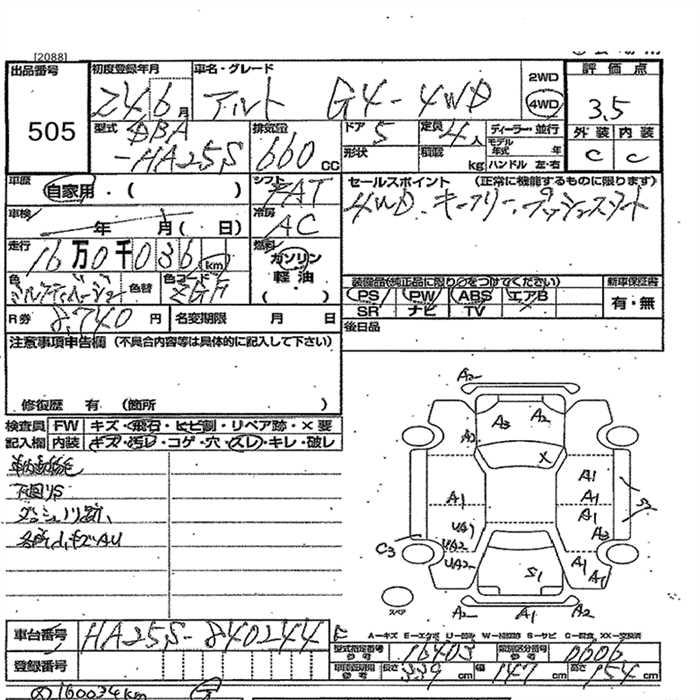 [2088]
出品番号
505
初度登録年月
Z4 6月
車名・グレード
アルト G4-4WD
2WD
4WD
評価点
3.5
外装 内装
C C
型式
DBA
-HA25S
排気量
660 CC
ドア 5
形状
定員 4人
積載 kg
ディーラー・並行
モデル年式 年
ハンドル 左・右
車歴
自家用・( )
シフト
FAT
車検
年 月( 日)
冷房
AC
走行
16万0千036 km
燃料
ガソリン
軽油
( ・ )
色
色替
色コード
ZGF
R券 8,740円
名変期限 月 日
セールスポイント (正常に機能するものに限ります)
4WD、キーフリー、プッシュスタート
装備品(純正品に限り○をつけてください)
PS PW ABS エアB
SR ナビ TV
新車保証書
有・無
後日品
注意事項申告欄 (不具合内容等は具体的に記入して下さい)
修復歴 有 (箇所 )
検査員記入欄
FW キズ・飛石・ヒビ割・リペア跡・×要
内装 キズ・汚レ・コゲ・穴・スレ・キレ・破レ
下回りS
各所小キズAU
A2
A3 A2
A2
X
A1
A1
A1
A1
A1
UA1
UA2
UA2
C3
A2
S1
A1
A1
S1
A2 A1 A2
スペア
車台番号 HA25S-840244
登録番号
A-キズ E-エクボ U-凹ミ W-補修跡 S-サビ C-腐食 XX-交換済
型式指定番号 参考 16403
類別区分番号 参考 0606
参考 長さ 339cm 幅 147cm 高さ 154cm
160034km